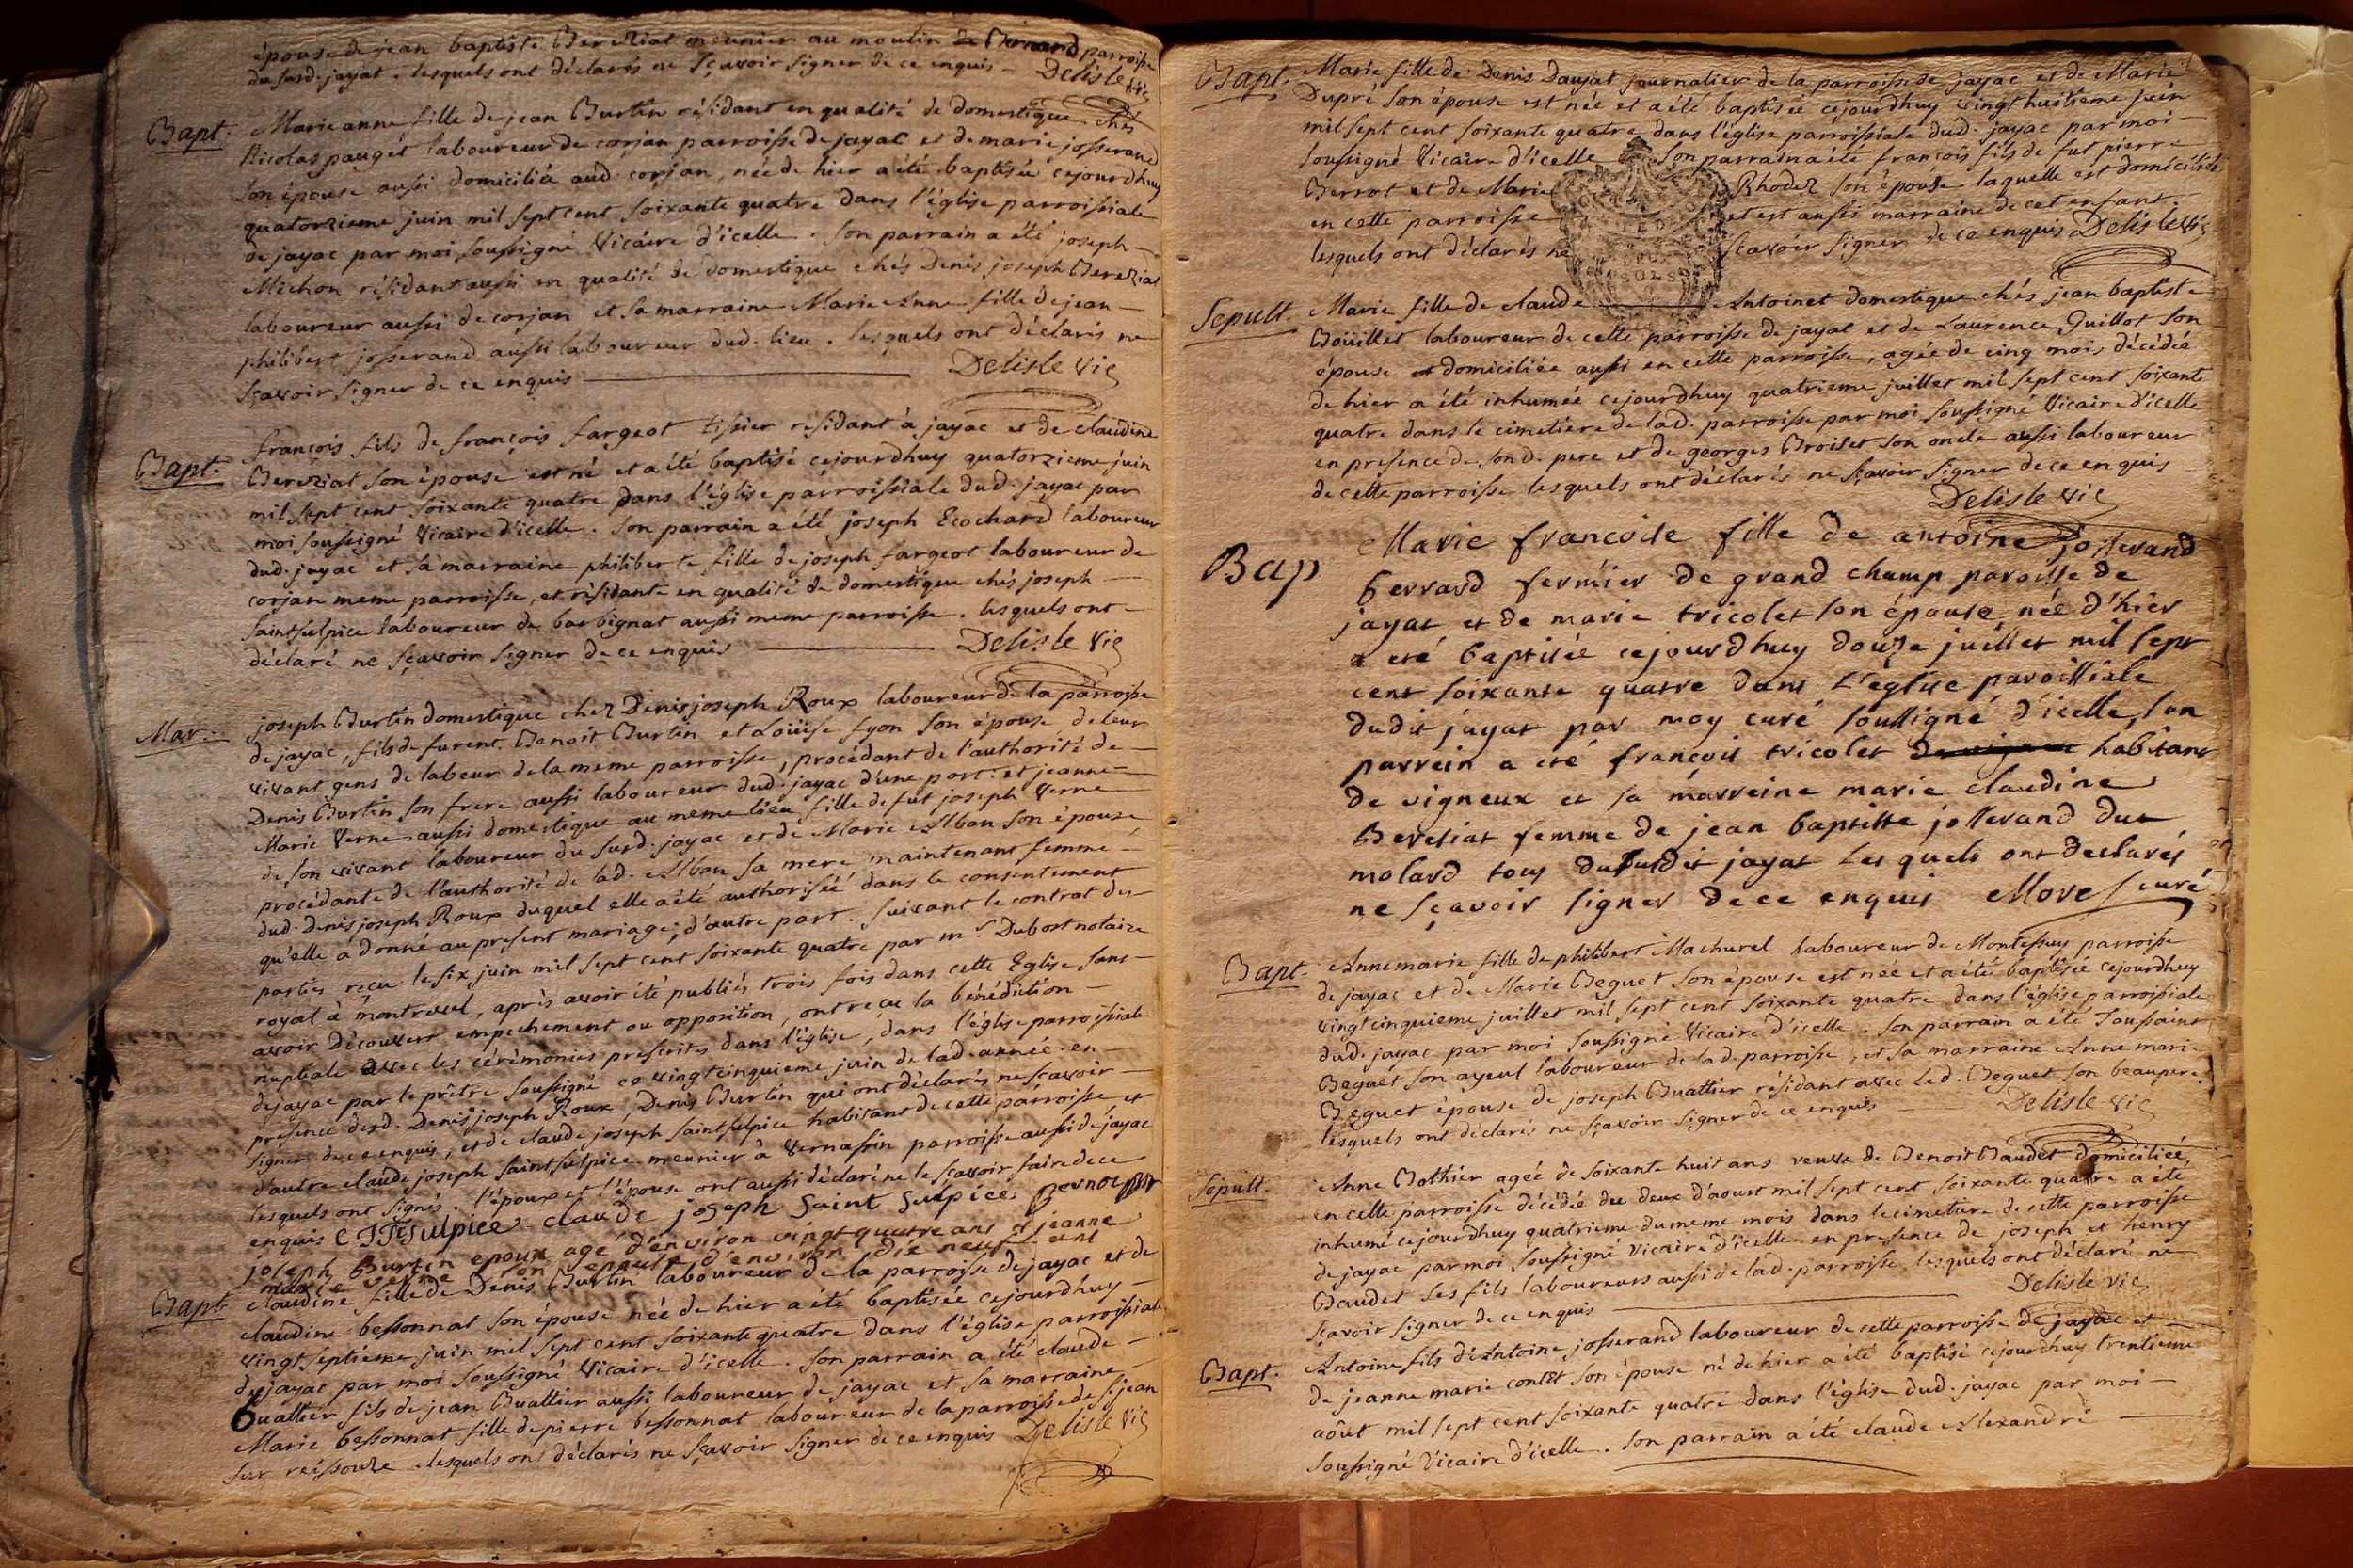 épouse de jean baptiste Bereziat meunier au moulin de Bernard parroisse
du susd. jayat. lesquels ont déclarés ne sçavoir signer de ce enquis — Delisle vic
Bapt. Marie anne fille de jean Burtin résidant en qualité de domestique chés
Nicolas pauget laboureur de corjan parroisse de jayac et de marie josserand
son épouse aussi domiciliée aud. corjan, née de hier a été baptisée cejourdhuy
quatorzieme juin mil sept cent soixante quatre dans l'église parroissiale
de jayac par moi soussigné Vicaire d'icelle. son parrain a été joseph —
Michon résidant aussi en qualité de domestique chés Denis joseph Bereziat
laboureur aussi de corjan et sa marraine Marie Anne fille de jean —
philibert josserand aussi laboureur dud. lieu. lesquels ont déclarés ne
sçavoir signer de ce enquis — Delisle vic
Bapt. françois fils de françois fargeot tissier résidant à jayac et de claudine
Bereziat son épouse est né et a été baptisé cejourdhuy quatorzieme juin
mil sept cent soixante quatre dans l'église parroissiale dud. jayac par
moi soussigné Vicaire d'icelle. son parrain a été joseph Ecochard laboureur
dud. jayac et sa marraine philiberte fille de joseph fargeot laboureur de
corjan meme parroisse, et résidante en qualité de domestique chés joseph —
saintsulpice laboureur de barbignat aussi meme parroisse. lesquels ont —
déclaré ne sçavoir signer de ce enquis — Delisle vic
Mar. joseph Burtin domestique chez Denis joseph Roux laboureur de la parroisse
de jayac, fils de furent Benoit Burtin et Loüise fyon son épouse de leur
vivant gens de labeur de la meme parroisse, procédant de l'authorité de —
Denis Burtin son frere aussi laboureur dud. jayac d'une part. et jeanne —
Marie Verne aussi domestique au meme lieu fille de fut joseph Verne
de son vivant laboureur du susd. jayac et de Marie Alban son épouse
procédante de l'authorité de lad. Alban sa mere maintenant femme —
dud. Denis joseph Roux duquel elle a été authorisée dans le consentement
qu'elle a donné au present mariage; d'autre part. suivant le contrat des
parties reçu le six juin mil sept cent soixante quatre par mr Dubost notaire
royal à montrevel, après avoir été publiés trois fois dans cette Eglise sans —
avoir découvert empechement ou opposition, ont reçu la bénédiction —
nuptiale avec les cérémonies prescrites dans l'église, dans l'église parroissiale
de jayac par le prêtre soussigné ce vingtcinquieme juin de lad. année. en —
presence desd. Denis joseph Roux, Denis Burtin qui ont déclarés ne sçavoir —
signer de ce enquis, et de claude joseph saintsulpice habitant de cette parroisse et
d'autre claude joseph saintsulpice meunier à Vernassin parroisse aussi de jayac
lesquels ont signés. l'époux et l'épouse ont aussi déclaré ne le sçavoir faire de ce
enquis C J StSulpice claude joseph Saint Sulpice
joseph Burtin epoux agé d'environ vingt quatre ans et jeanne
marie verne son epouse d'environ dix neuf ans
Bapt claudine fille de Denis Burtin laboureur de la parroisse de jayac et de
claudine bessonnat son épouse née de hier a été baptisée cejourdhuy —
vingtseptieme juin mil sept cent soixante quatre dans l'église parroissiale
de jayac par moi soussigné Vicaire d'icelle. son parrain a été claude —
Buattier fils de jean Buattier aussi laboureur de jayac et sa marraine —
Marie bessonnat fille de pierre bessonnat laboureur de la parroisse de st. jean
sur reissouze. lesquels ont déclarés ne sçavoir signer de ce enquis Delisle vic
Bapt. Marie fille de Denis Daujat journalier de la parroisse de jayac et de Marie
Dupré son épouse est née et a été baptisée cejourdhuy vingt huitieme juin
mil sept cent soixante quatre dans l'église parroissiale dud. jayac par moi —
soussigné Vicaire d'icelle son parrain a été françois fils de fut pierre
Berrot et de Marie Rhodez son épouse laquelle est domiciliée
en cette parroisse et est aussi marraine de cet enfant.
lesquels ont déclarés ne sçavoir signer de ce enquis Delisle vic
Sepult. Marie fille de claude — Antoinet domestique chés jean baptiste
Boüillet laboureur de cette parroisse de jayat et de Laurence Guillot son
épouse et domiciliée aussi en cette parroisse, agée de cinq mois décédée
de hier a été inhumée cejourdhuy quatrieme juillet mil sept cent soixante
quatre dans le cimetiere de lad. parroisse par moi soussigné Vicaire d'icelle
en presence de sond. pere et de georges Broiset son oncle aussi laboureur
de cette parroisse lesquels ont déclarés ne sçavoir signer de ce enquis
Delisle vic
Bap Marie francoise fille de antoine josserand
gerrard fermier de grand champ paroisse de
jayat et de marie tricolet son épouse, née d'hier
a eté baptisée cejourdhuy douze juillet mil sept
cent soixante quatre dans l'eglise paroissiale
dudit jayat par moy curé soussigné d'icelle, son
parrein a eté françois tricolet habitant
de vigneux et sa marreine marie claudine
Beresiat femme de jean baptiste josserand du
molard tous du susdit jayat les quels ont declarés
ne sçavoir signer de ce enquis Morel curé
Bapt. Annemarie fille de philibert Machurel laboureur de Montessuy parroisse
de jayac et de Marie Beguet son épouse est née et a été baptisée cejourdhuy
vingtcinquieme juillet mil sept cent soixante quatre dans l'église parroissiale
dud. jayac par moi soussigné Vicaire d'icelle. son parrain a été Toussaint
Beguet son ayeul laboureur de lad. parroisse, et sa marraine Anne marie
Beguet épouse de joseph Buattier résidant avec led. Beguet son beaupere.
lesquels ont déclarés ne sçavoir signer de ce enquis — Delisle vic
Sépult. Anne Bothier agée de soixante huit ans veuve de Benoit Baudet domiciliée
en cette parroisse décédée du deux d'aoust mil sept cent soixante quatre a été
inhumé cejourdhuy quatrieme du meme mois dans le cimetiere de cette parroisse
de jayac par moi soussigné Vicaire d'icelle. en presence de joseph et henry
Baudet ses fils laboureurs aussi de lad. parroisse. lesquels ont déclaré ne
sçavoir signer de ce enquis — Delisle vic
Bapt. Antoine fils d'Antoine josserand laboureur de cette parroisse de jayac et —
de jeanne marie contet son épouse né de hier a été baptisé cejourdhuy trentieme
août mil sept cent soixante quatre dans l'église dud. jayac par moi —
soussigné Vicaire d'icelle. son parrain a été claude Alexandre —